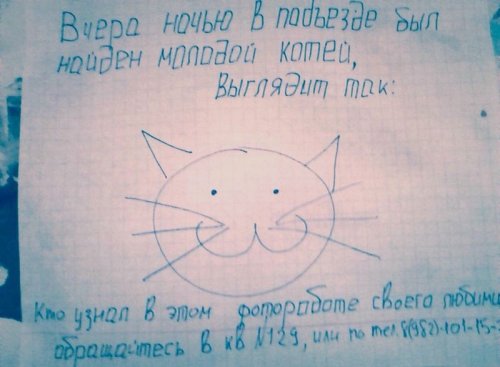 Вчера ночью в подъезде был
найден молодой котей,
Выглядит так:
Кто узнал в этом фотороботе своего
обращайтесь в кв №129, или по тел. 8(982)-101-15-